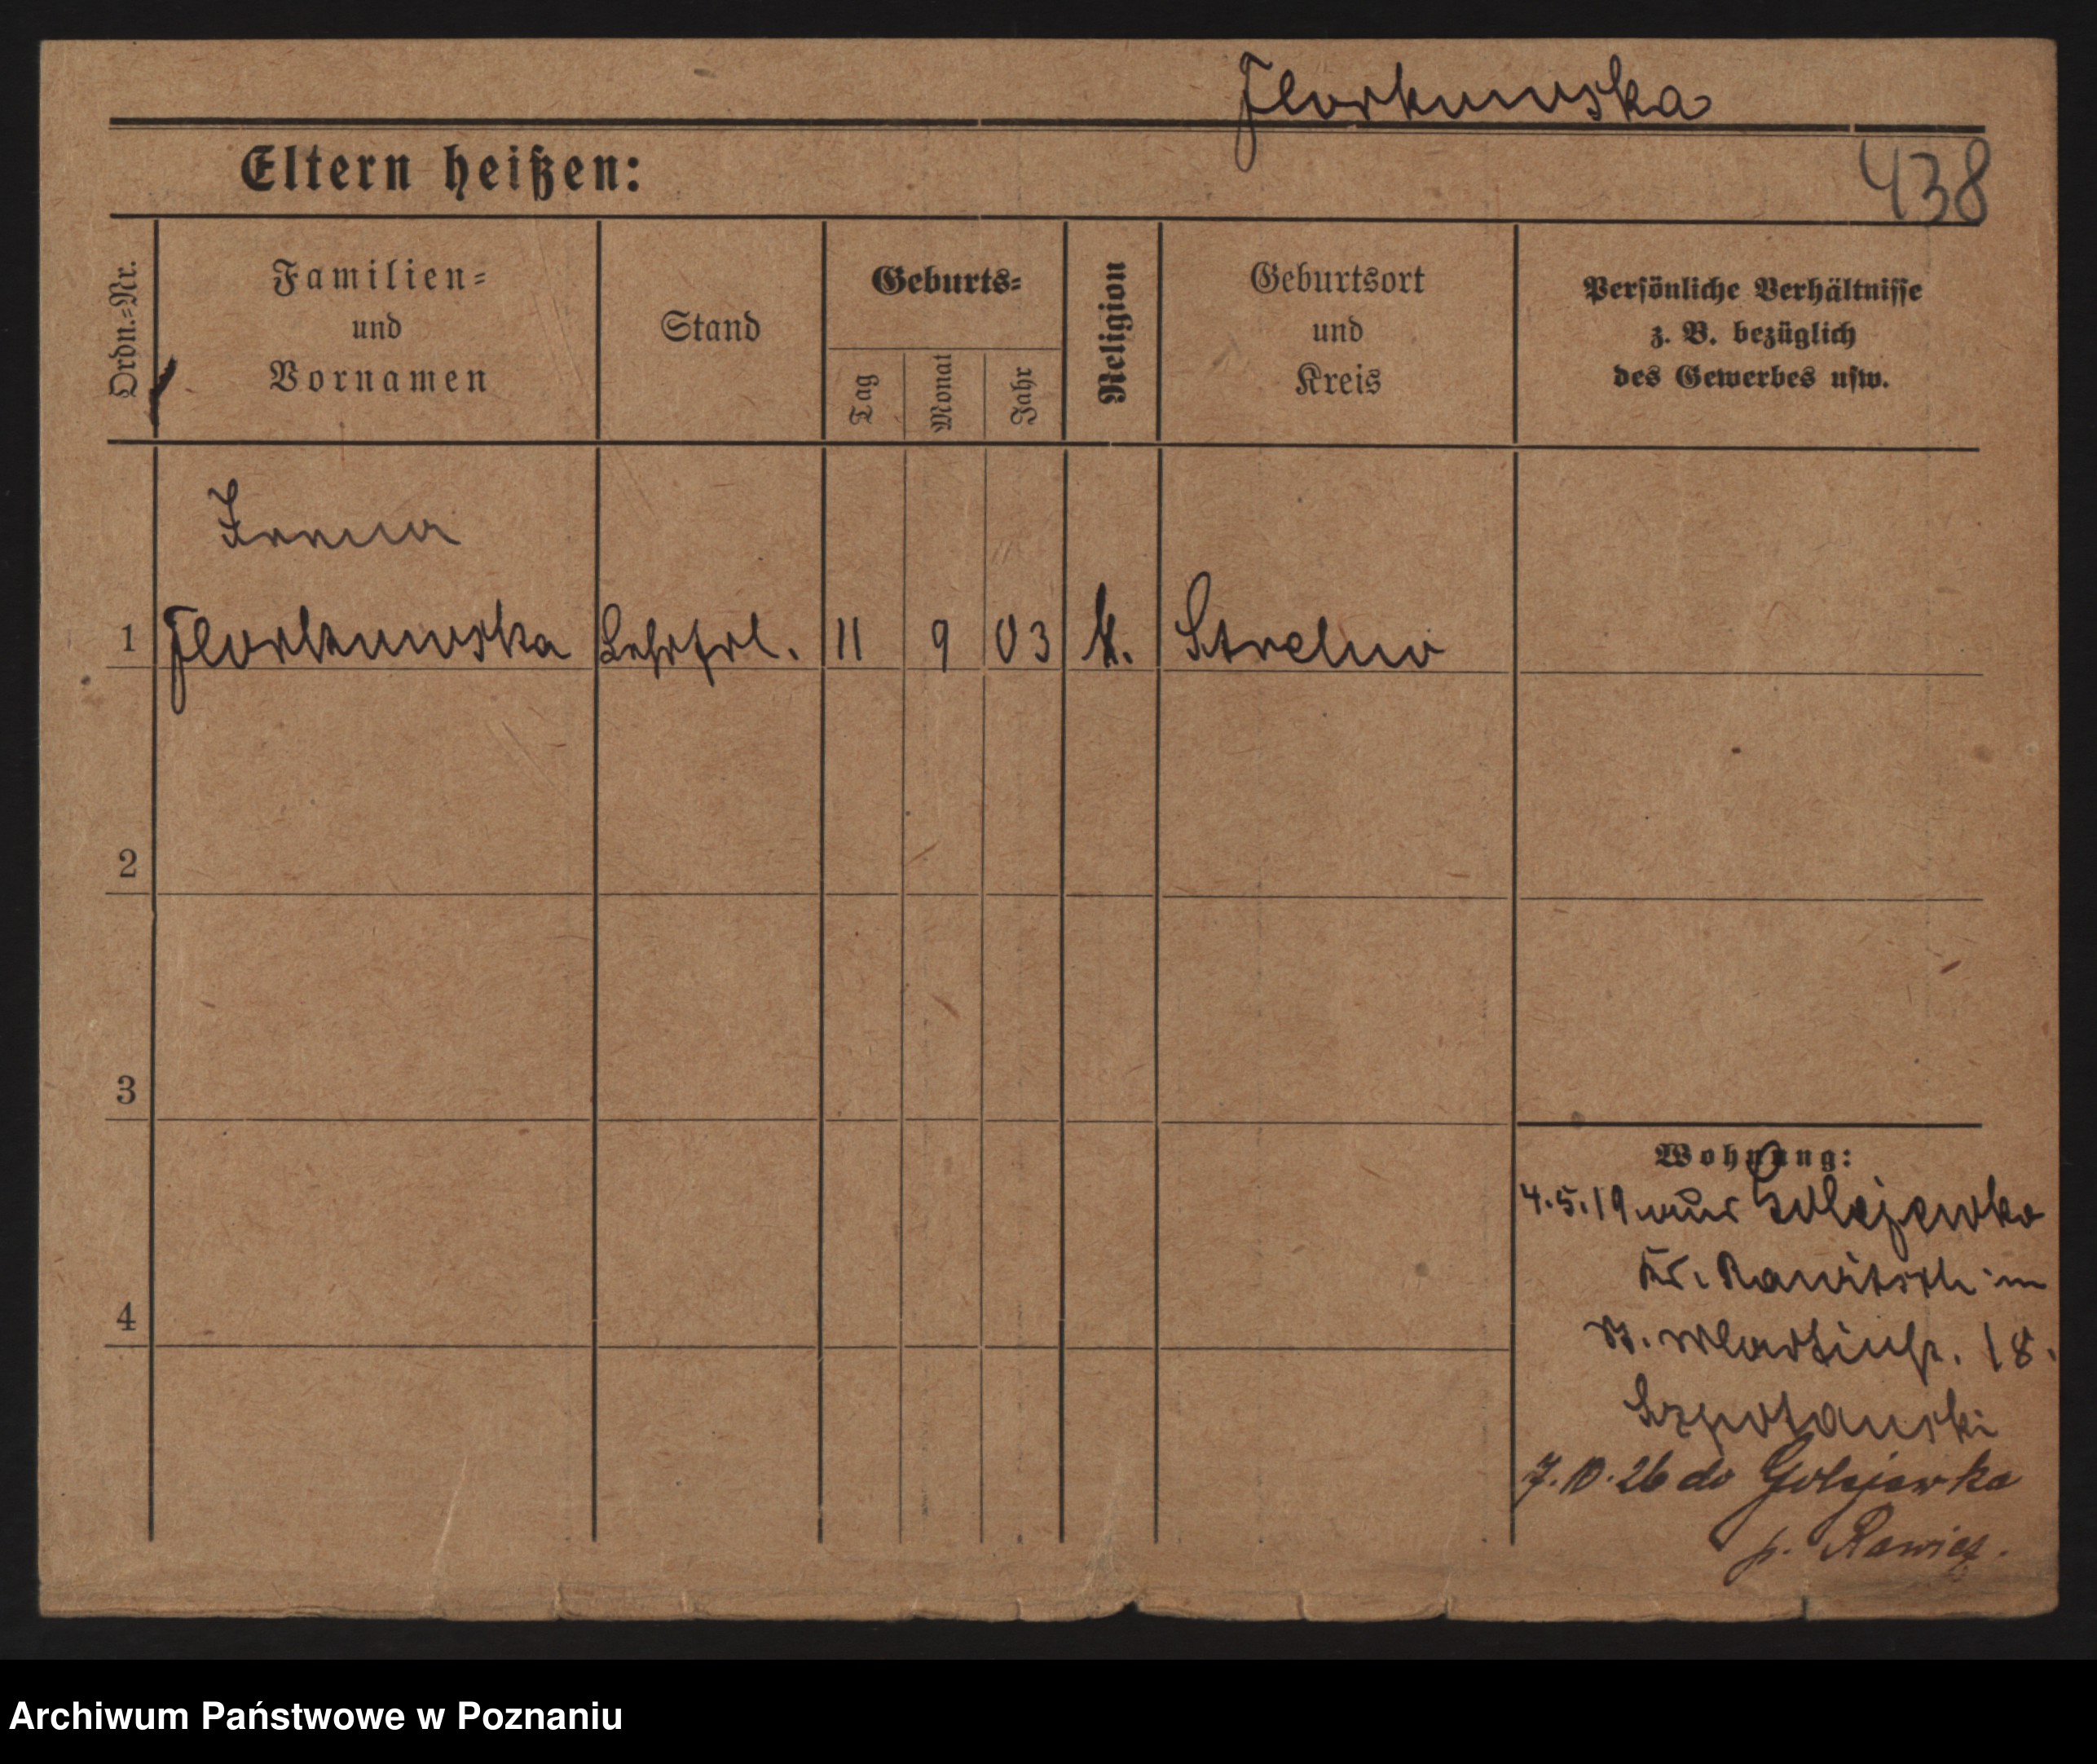 Florkowska
Eltern heißen:
438
Ordn.=Nr.
Familien=
und
Vornamen
Stand
Geburts=
Tag
Monat
Jahr
Religion
Geburtsort
und
Kreis
Persönliche Verhältnisse
z. B. bezüglich
des Gewerbes usw.
Irena
1 Florkowska Lehrfrl. 11 9 03 k. Strelno
2
3
4
Wohnung:
4.5.19 aus Golejewko
Kr. Rawitsch in
St. Martinstr. 18.
Szpotanski
7.10.26 do Golejewka
p. Rawicz.
Archiwum Państwowe w Poznaniu